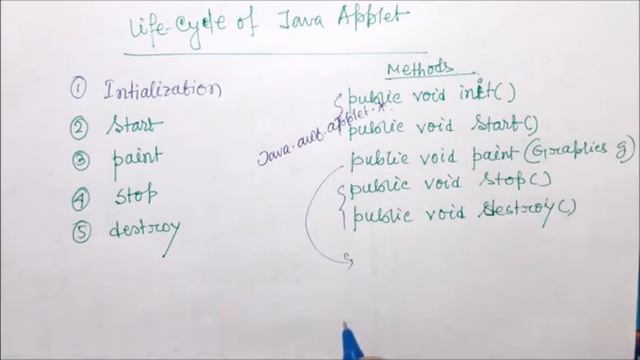 Life-Cycle of Java Applet
Methods
① Intialization
public void init()
② Start
Java.awt.applet.*
public void Start()
③ paint
public void paint(Graphics g)
④ Stop
public void Stop()
⑤ destroy
public void destroy()